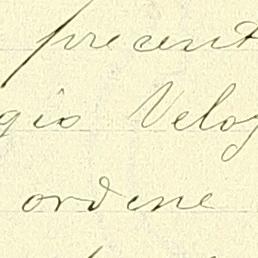 precent
gio Veloz
ordene